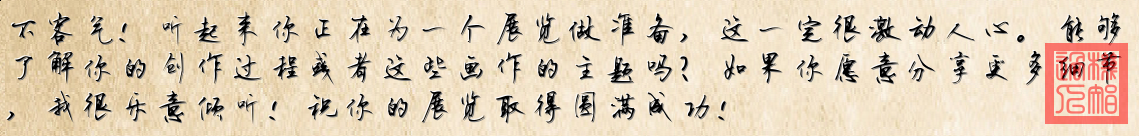 不客气！听起来你正在为一个展览做准备，这一定很激动人心。能够
了解你的创作过程或者这些画作的主题吗？如果你愿意分享更多细节
，我很乐意倾听！祝你的展览取得圆满成功！